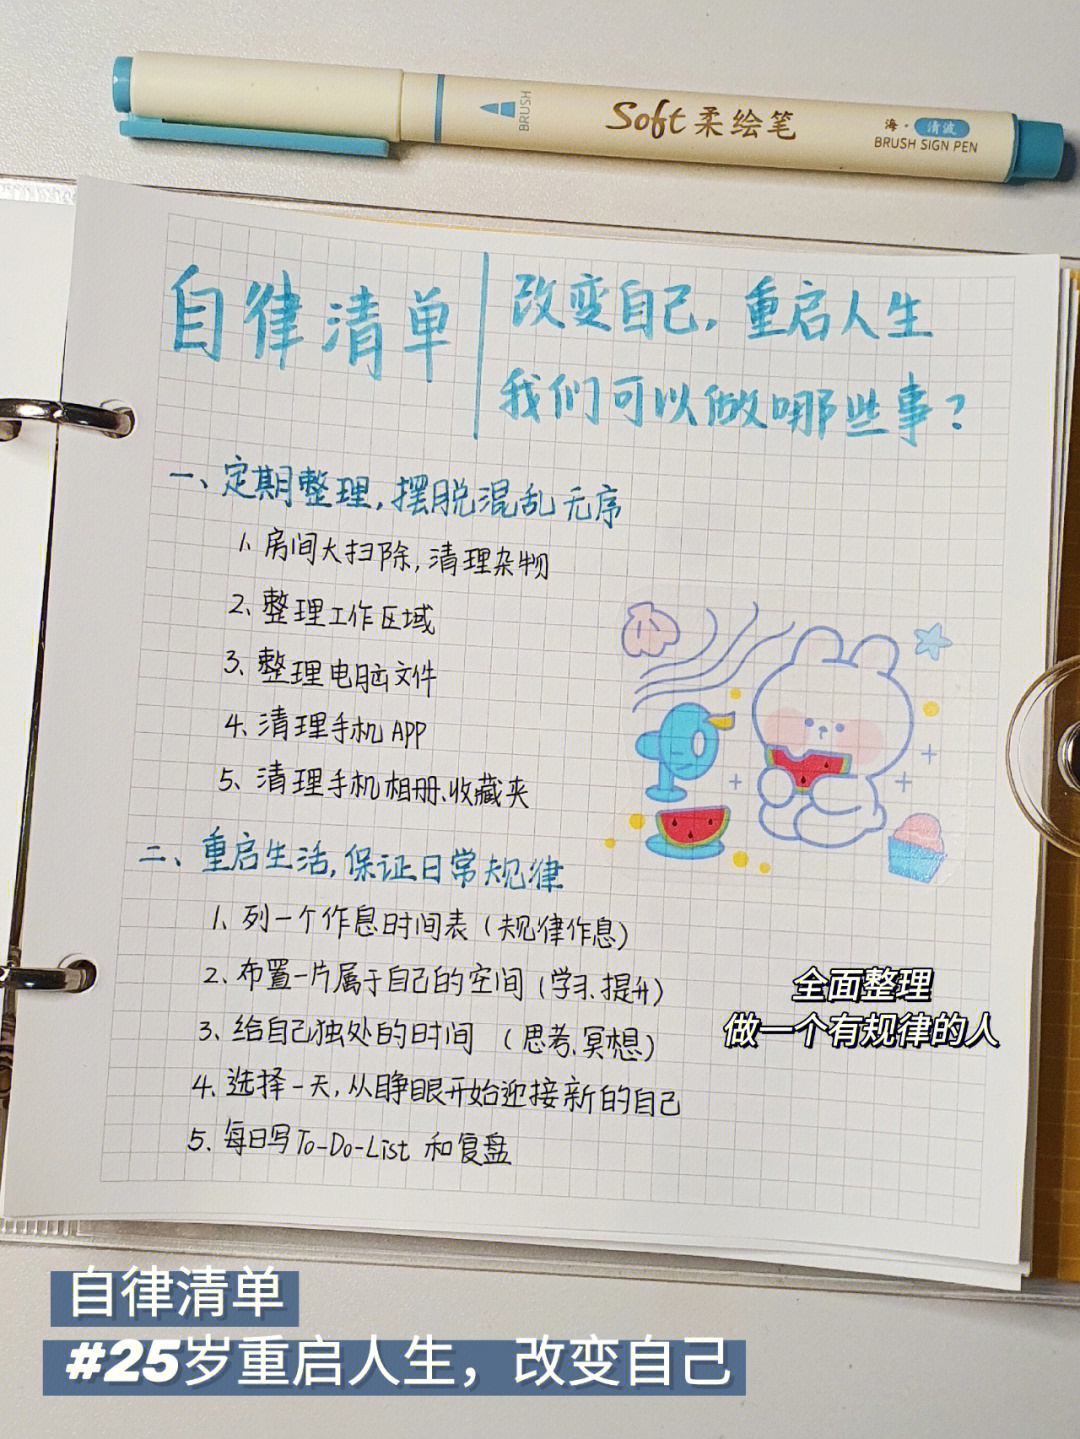 BRUSH
Soft 柔绘笔
海·清波
BRUSH SIGN PEN
自律清单
改变自己，重启人生
我们可以做哪些事？
一、定期整理，摆脱混乱无序
1、房间大扫除，清理杂物
2、整理工作区域
3、整理电脑文件
4、清理手机APP
5、清理手机相册、收藏夹
二、重启生活，保证日常规律
1、列一个作息时间表（规律作息）
2、布置一片属于自己的空间（学习、提升）
3、给自己独处的时间（思考、冥想）
4、选择一天，从睁眼开始迎接新的自己
5、每日写To-Do-List 和复盘
全面整理
做一个有规律的人
自律清单
#25岁重启人生，改变自己